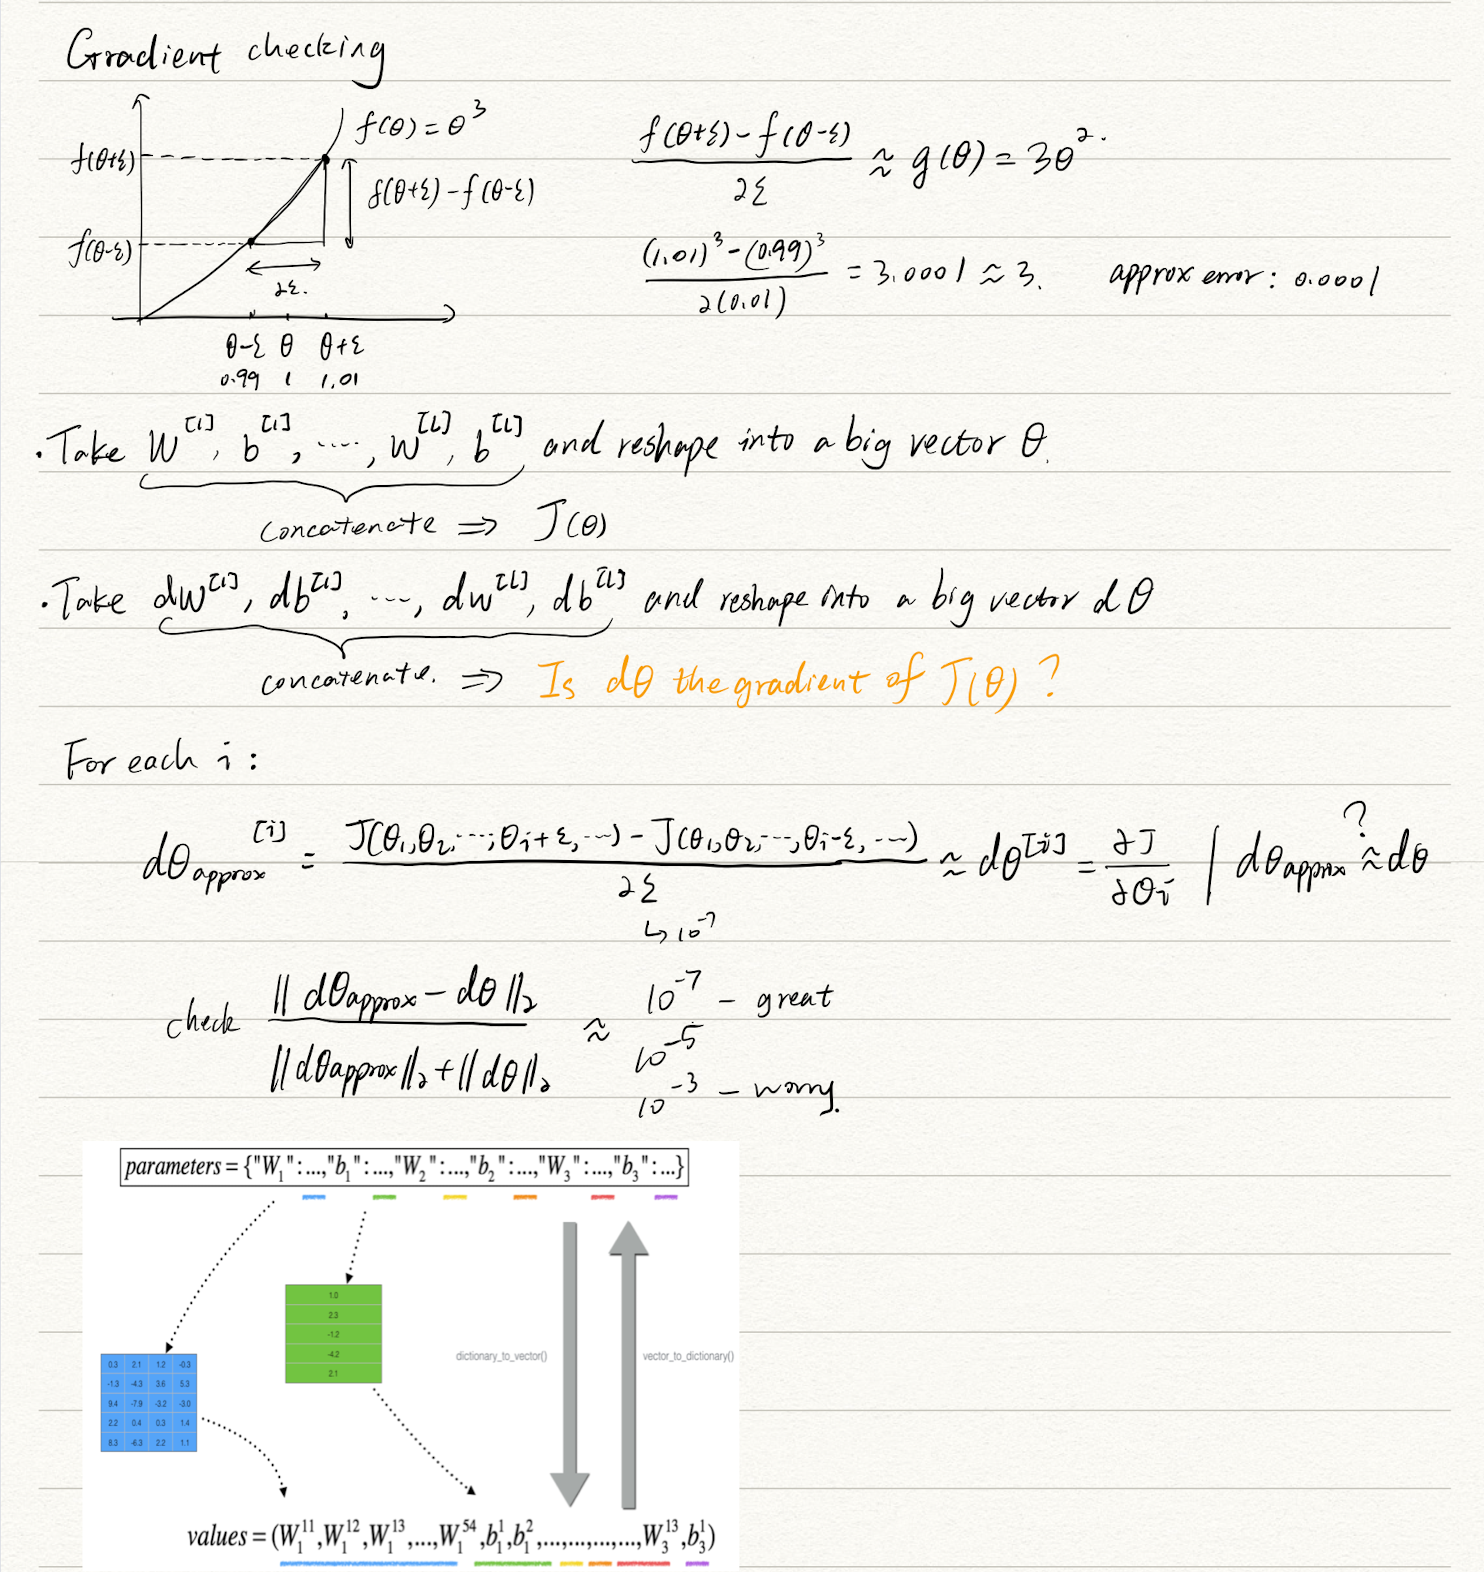 Gradient checking
f(θ) = θ³
f(θ+ε)
f(θ+ε) - f(θ-ε)
f(θ-ε)
2ε.
θ-ε θ θ+ε
0.99 1 1.01
(f(θ+ε) - f(θ-ε)) / 2ε ≈ g(θ) = 3θ².
((1.01)³ - (0.99)³) / 2(0.01) = 3.0001 ≈ 3. approx error: 0.0001
· Take W^[1], b^[1], ....., W^[L], b^[L] and reshape into a big vector θ.
concatenate ⇒ J(θ)
· Take dW^[1], db^[1], ..., dW^[L], db^[L] and reshape into a big vector dθ
concatenate. ⇒ Is dθ the gradient of J(θ)?
For each i:
dθ_approx^[i] = (J(θ₁,θ₂,...,θᵢ+ε,...) - J(θ₁,θ₂,...,θᵢ-ε,...)) / 2ε ≈ dθ^[i] = ∂J/∂θᵢ | dθ_approx ≈? dθ
↳ 10⁻⁷
check ‖dθ_approx - dθ‖₂ / (‖dθ_approx‖₂ + ‖dθ‖₂) ≈ 10⁻⁷ - great
10⁻⁵
10⁻³ - worry.
parameters = {"W₁":...,"b₁":...,"W₂":...,"b₂":...,"W₃":...,"b₃":...}
1.0
2.3
-1.2
-4.2
2.1
dictionary_to_vector() vector_to_dictionary()
0.3 2.1 1.2 -0.3
-1.3 -4.3 3.6 5.3
9.4 -7.9 -3.2 -3.0
2.2 0.4 0.3 1.4
8.3 -6.3 2.2 1.1
values = (W₁¹¹,W₁¹²,W₁¹³,...,W₁⁵⁴,b₁¹,b₁²,...,...,...,...,W₃¹³,b₃¹)